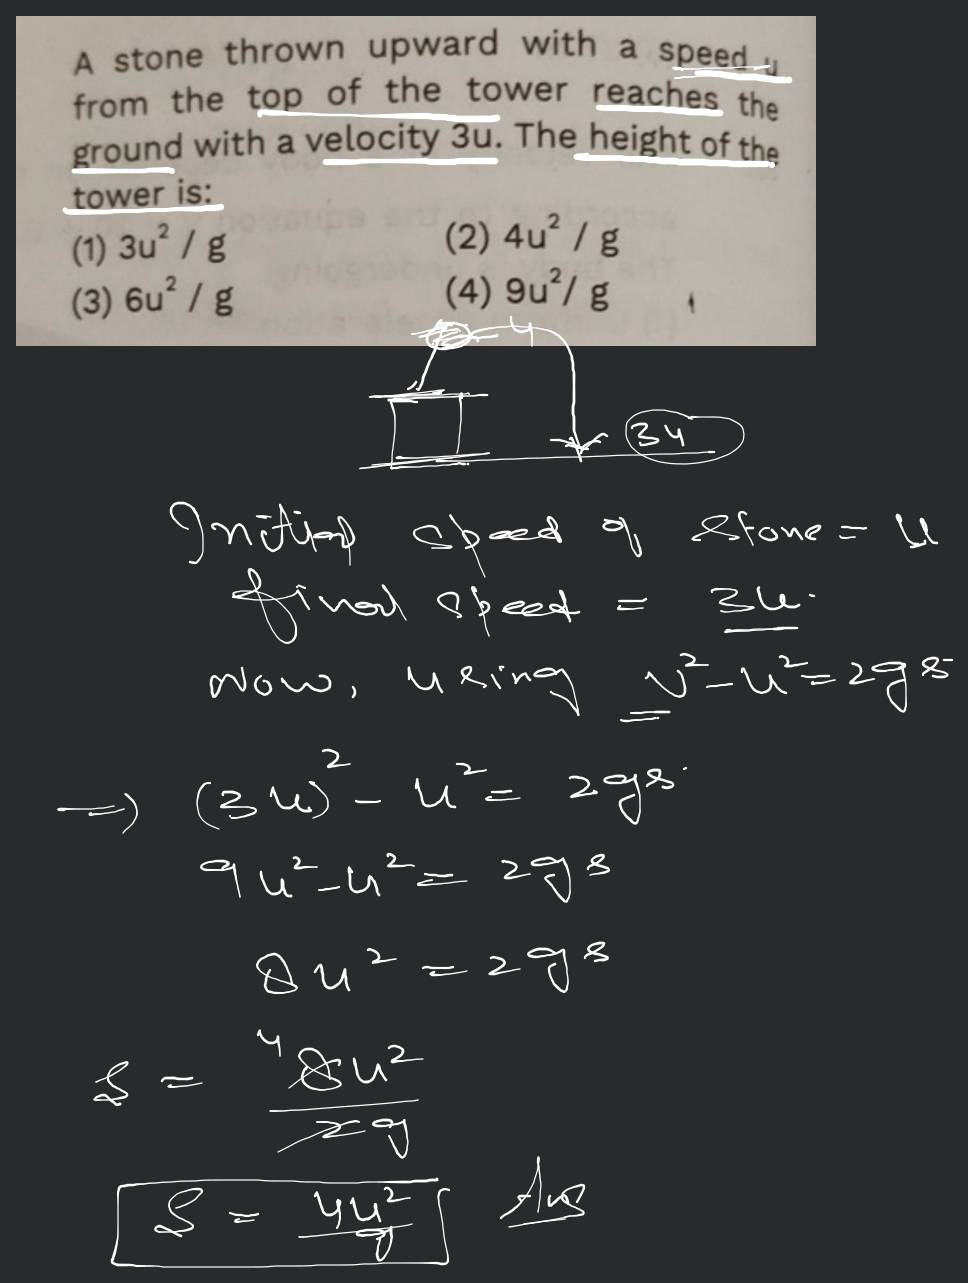 A stone thrown upward with a speed u
from the top of the tower reaches the
ground with a velocity 3u. The height of the
tower is:
(1) 3u² / g
(2) 4u² / g
(3) 6u² / g
(4) 9u²/ g
u
3u
Initial speed of stone = u
final speed = 3u.
Now, using v² - u² = 2gs
⇒ (3u)² - u² = 2gs
9u² - u² = 2gs
8u² = 2gs
S = 4 8u² / 2g
S = 4u² / g Ans